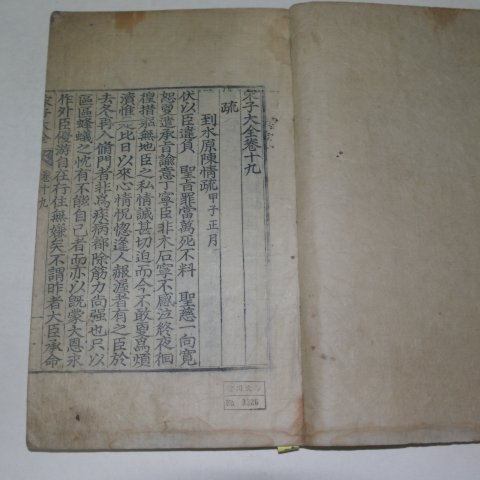 宋子大全卷十九
疏
到水原陳情疏 甲子正月
伏以臣遣負 聖旨罪當萬死不料 聖慈一向寬
恕叠遣承旨諭意丁寧臣非木石寧不感泣終夜徊
徨措躬無地臣之私情誠甚切迫而今不敢更爲煩
瀆惟比日以來心情怳惚逢人報渥者有之臣於
去冬再入脩門者非爲疾病都除筋力尚强也只以
區區螻蟻之忱有不能自已者而亦以旣蒙大恩永
作外臣倘游自在行住無嫌矣不謂昨者大臣承命
宋子大全 卷十九